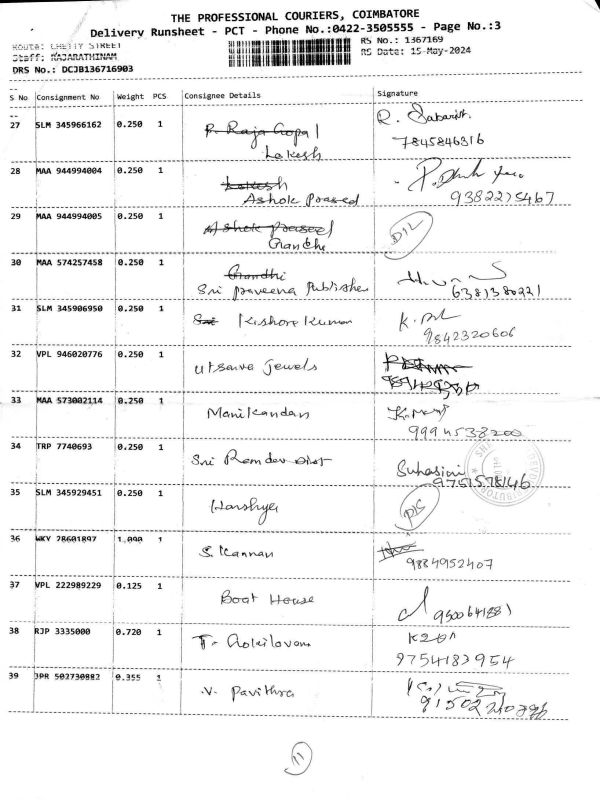 THE PROFESSIONAL COURIERS, COIMBATORE
Delivery Runsheet - PCT - Phone No.:0422-3505555 - Page No.:3
Route: CHETTY STREET RS No.: 1367169
Staff: RAJARATHINAM RS Date: 15-May-2024
DRS No.: DCJB136716903
S No Consignment No Weight PCS Consignee Details Signature
27 SLM 345966162 0.250 1 P. Raja Gopal R.
Lokesh 7845846316
28 MAA 944994004 0.250 1 Lokesh
Ashok Prased 9382275467
29 MAA 944994005 0.250 1 Ashok prased
Gandhi
30 MAA 574257458 0.250 1 Gandhi
Sri praveena Publisher 6381380221
31 SLM 345906950 0.250 1 Sri Kishore Kumar K.
9842320606
32 VPL 946020776 0.250 1 Utsava Jewels
33 MAA 573002114 0.250 1 Manikandan K.
9994538200
34 TRP 7740693 0.250 1 Sri Ramdev Dist Suhasini
9751578146
35 SLM 345929451 0.250 1
36 WKY 78601897 1.090 1 S. Kannan
9884952407
37 VPL 222989229 0.125 1 Boat House
38 RJP 3335000 0.720 1 T.
9754183954
39 JPR 502730882 0.355 1 V. Pavithra
11